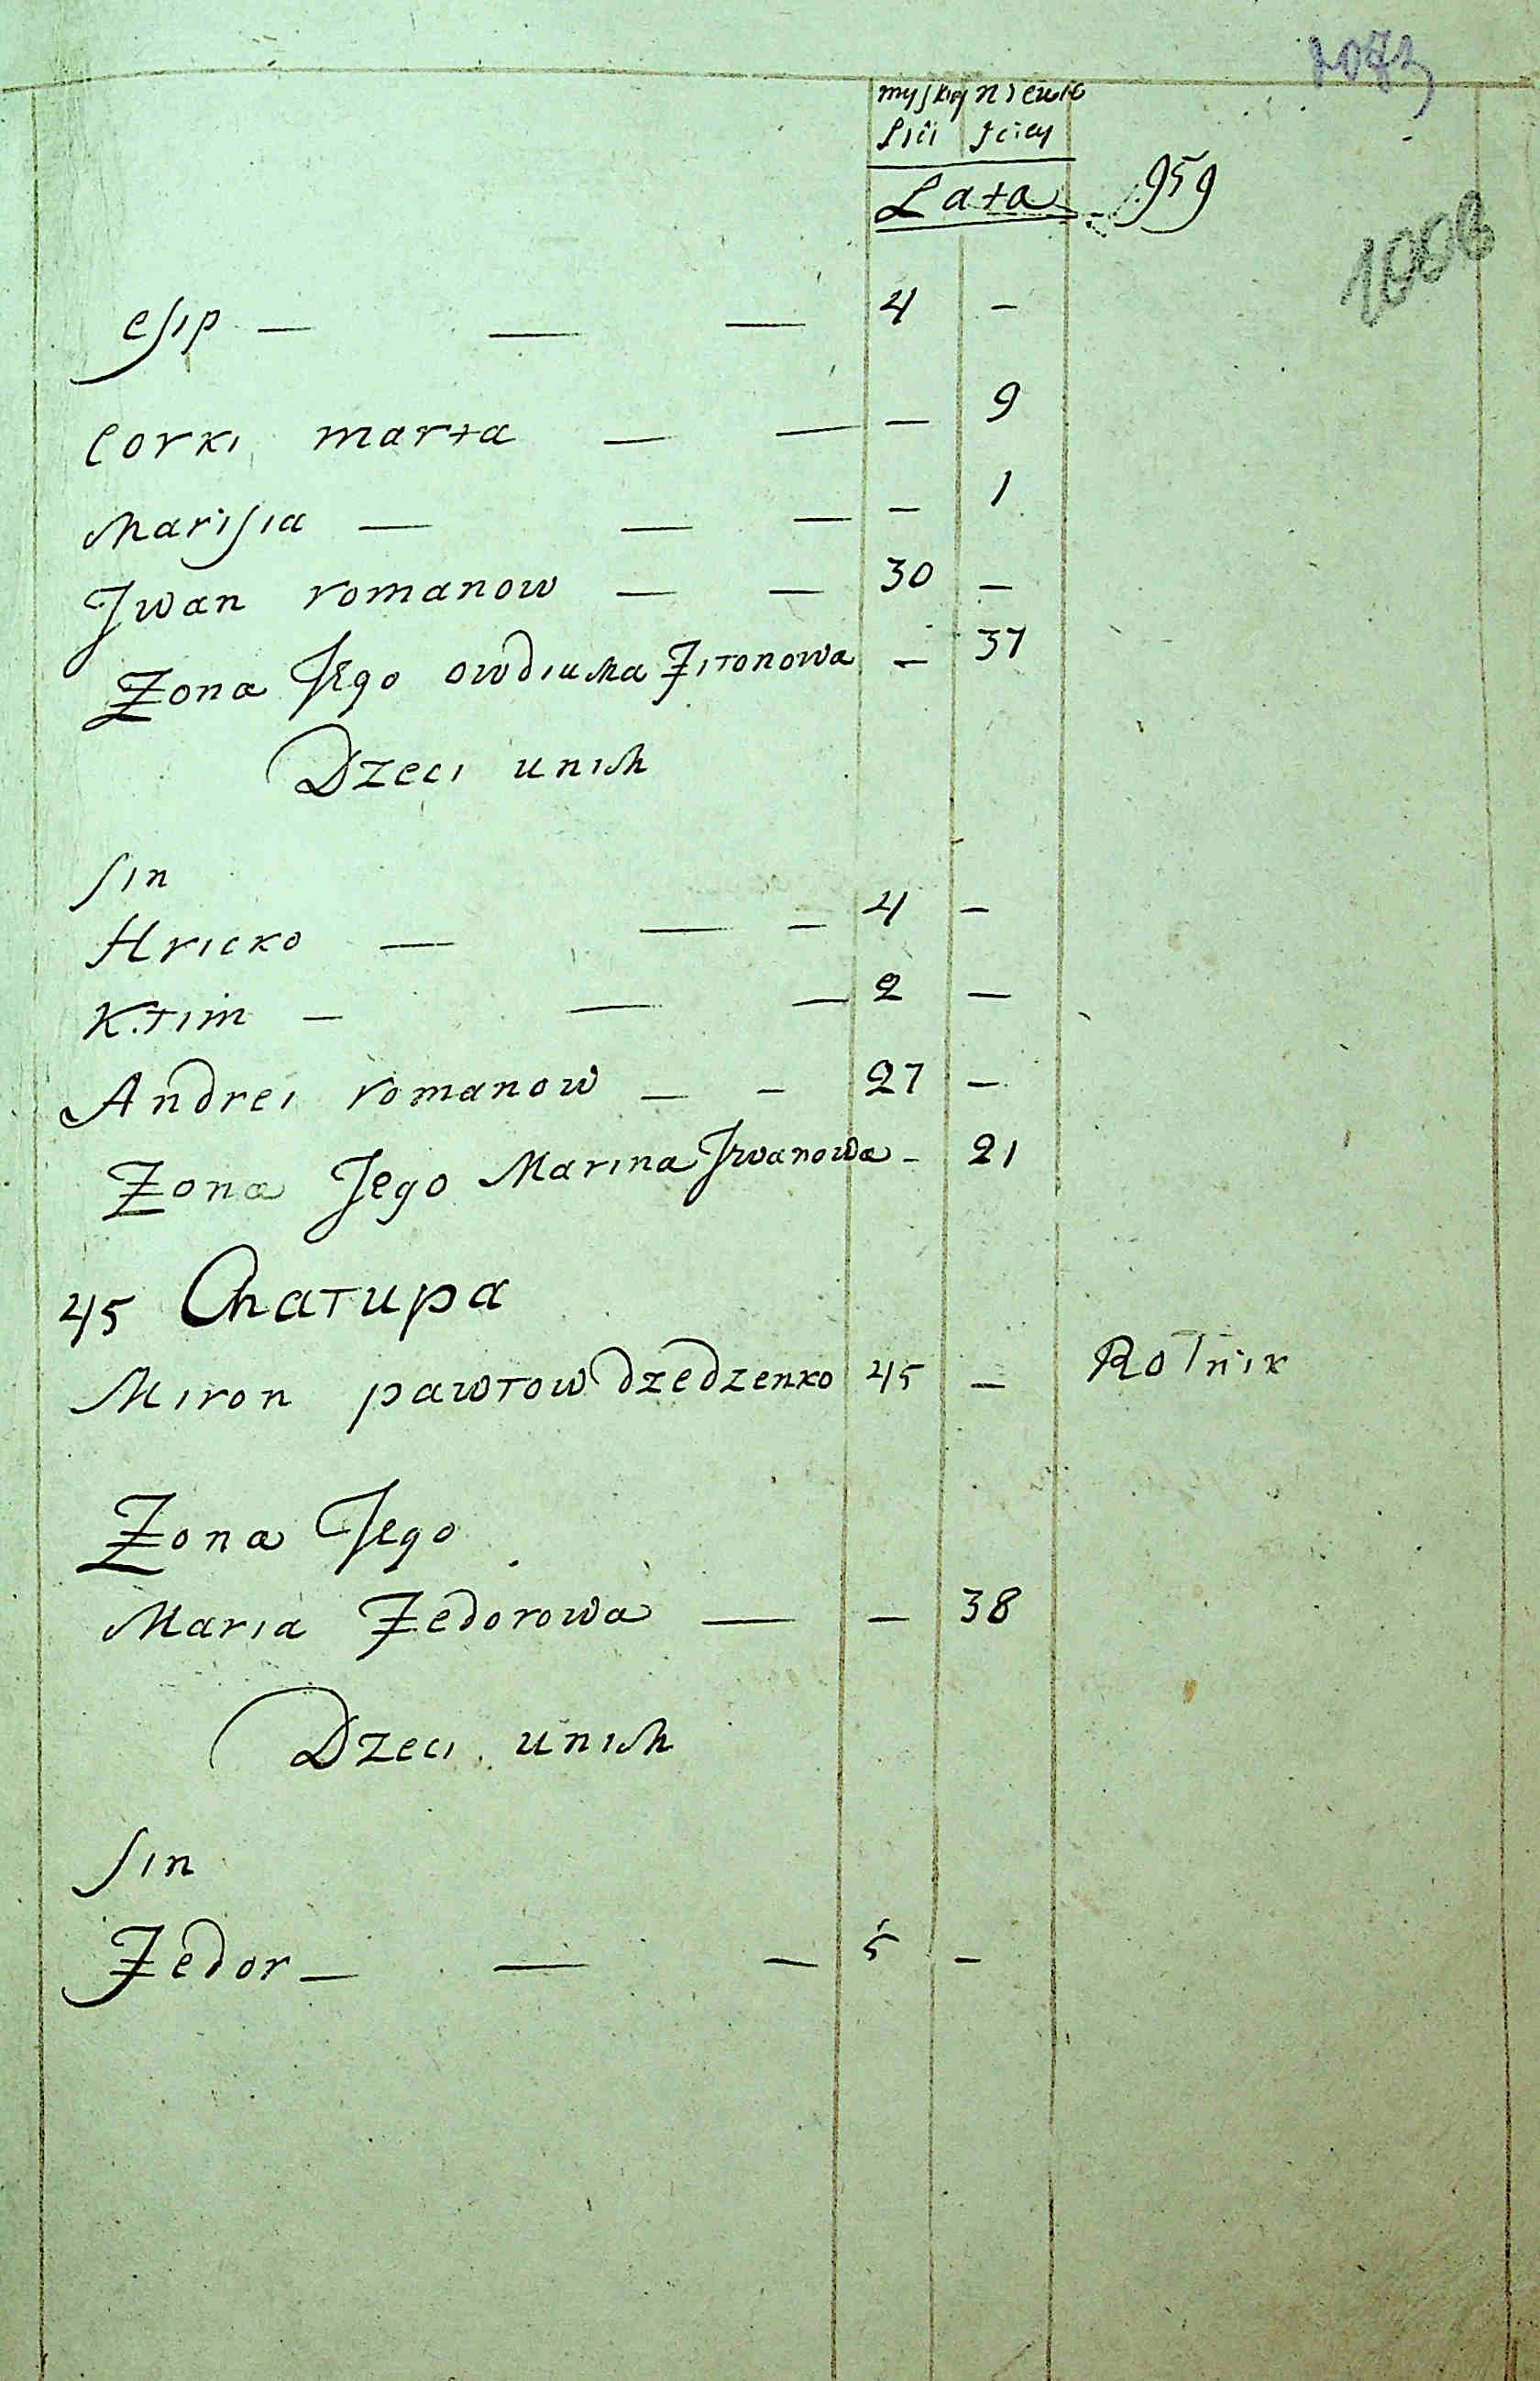 myskiey niewie
Plci Sciey
Lata
959
1006
esip — — — 4 -
Corki marta — — — 9
Marisia — — — — 1
Jwan romanow — — 30 —
Zona Jego owdiuha Fitonowa — 37
Dzeci unih
sin
Hricko — — — 4 -
K.tim — — — 2 —
Andrei romanow — - 27 —
Zona Jego Marina Jwanowa - 21
45 Chatupa
Miron pawtow dzedzenko 45 — Rolnik
Zona Jego
Maria Fedorowa — — 38
Dzeci unih
sin
Fedor — — — 5 -